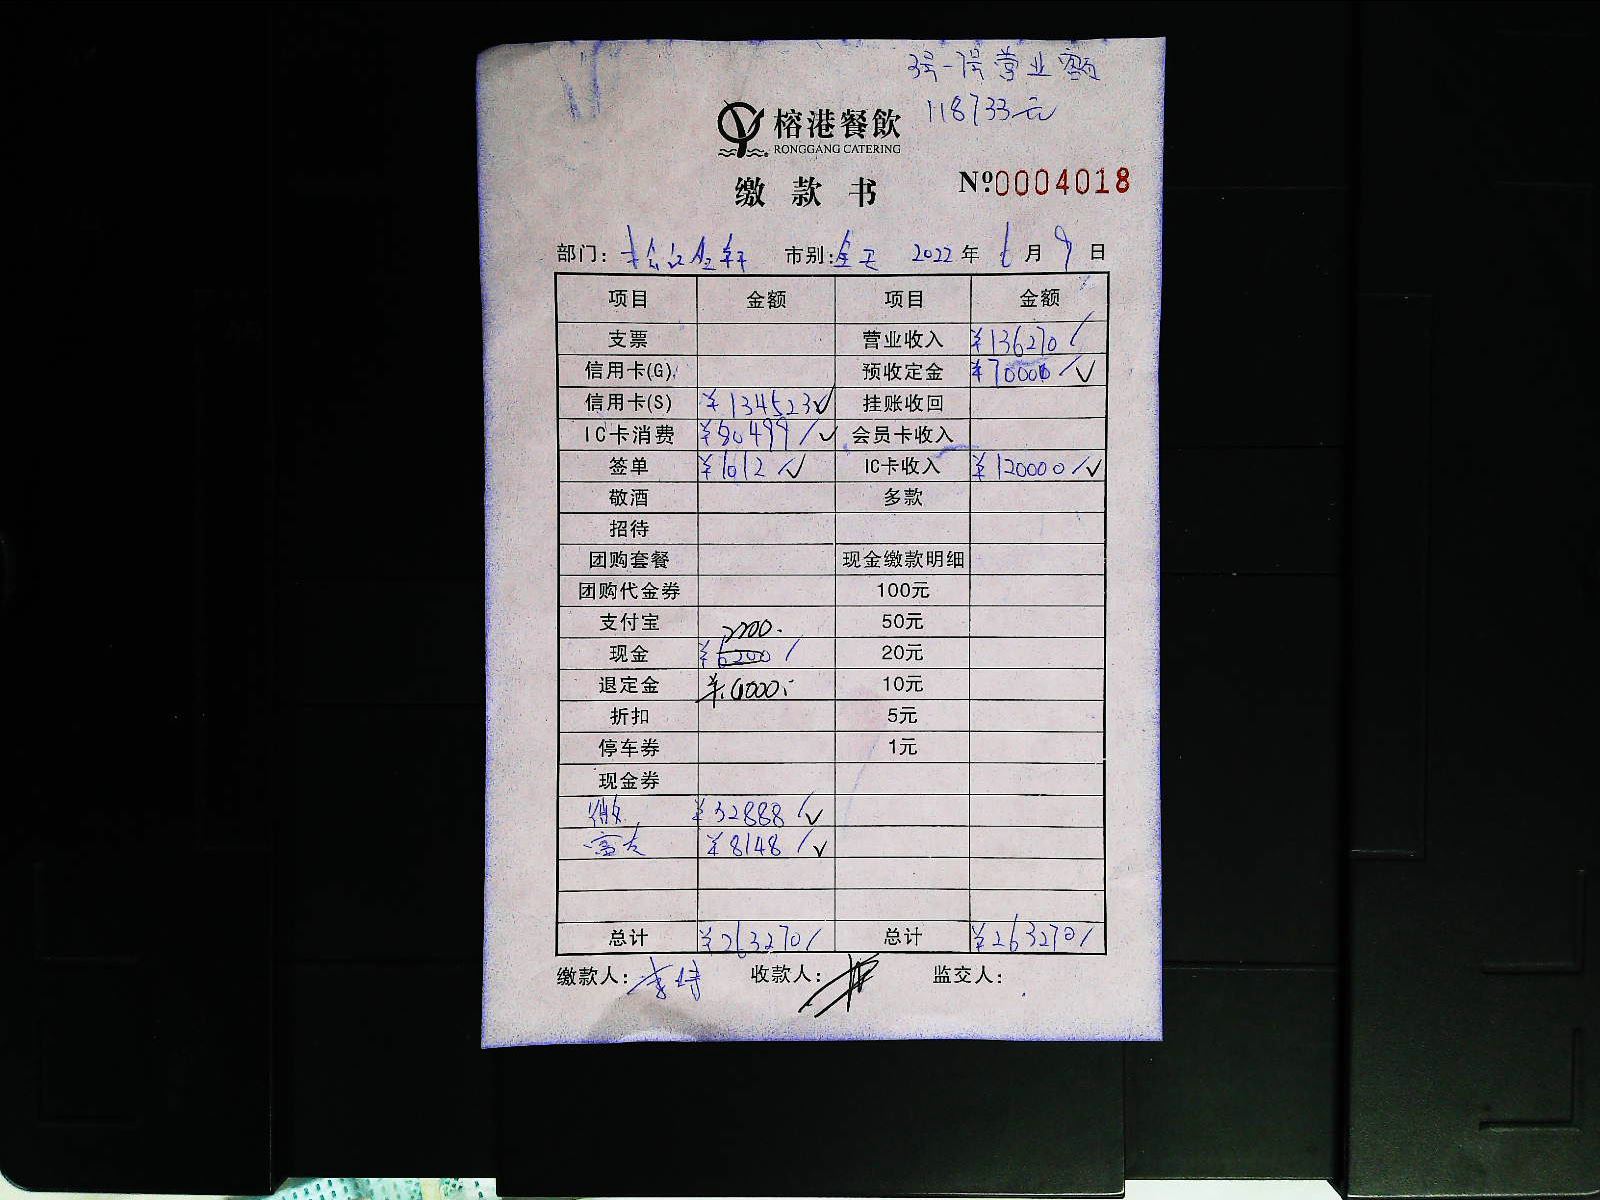 3号-7号营业额
118733元
榕港餐飲
RONGGANG CATERING
缴款书
№0004018
部门: 市别:全天 2022年6月9日
项目 金额 项目 金额
支票 营业收入 ¥136270/
信用卡(G) 预收定金 ¥7000/✓
信用卡(S) ¥134523✓ 挂账收回
IC卡消费 ¥80499/✓ 会员卡收入
签单 ¥1012/✓ IC卡收入 ¥120000/✓
敬酒 多款
招待
团购套餐 现金缴款明细
团购代金券 100元
支付宝 50元
2200.
现金 ¥6200/ 20元
退定金 ¥4000. 10元
折扣 5元
停车券 1元
现金券
¥32888/✓
富友 ¥8148/✓
总计 ¥263270/ 总计 ¥263270/
缴款人: 收款人: 监交人: